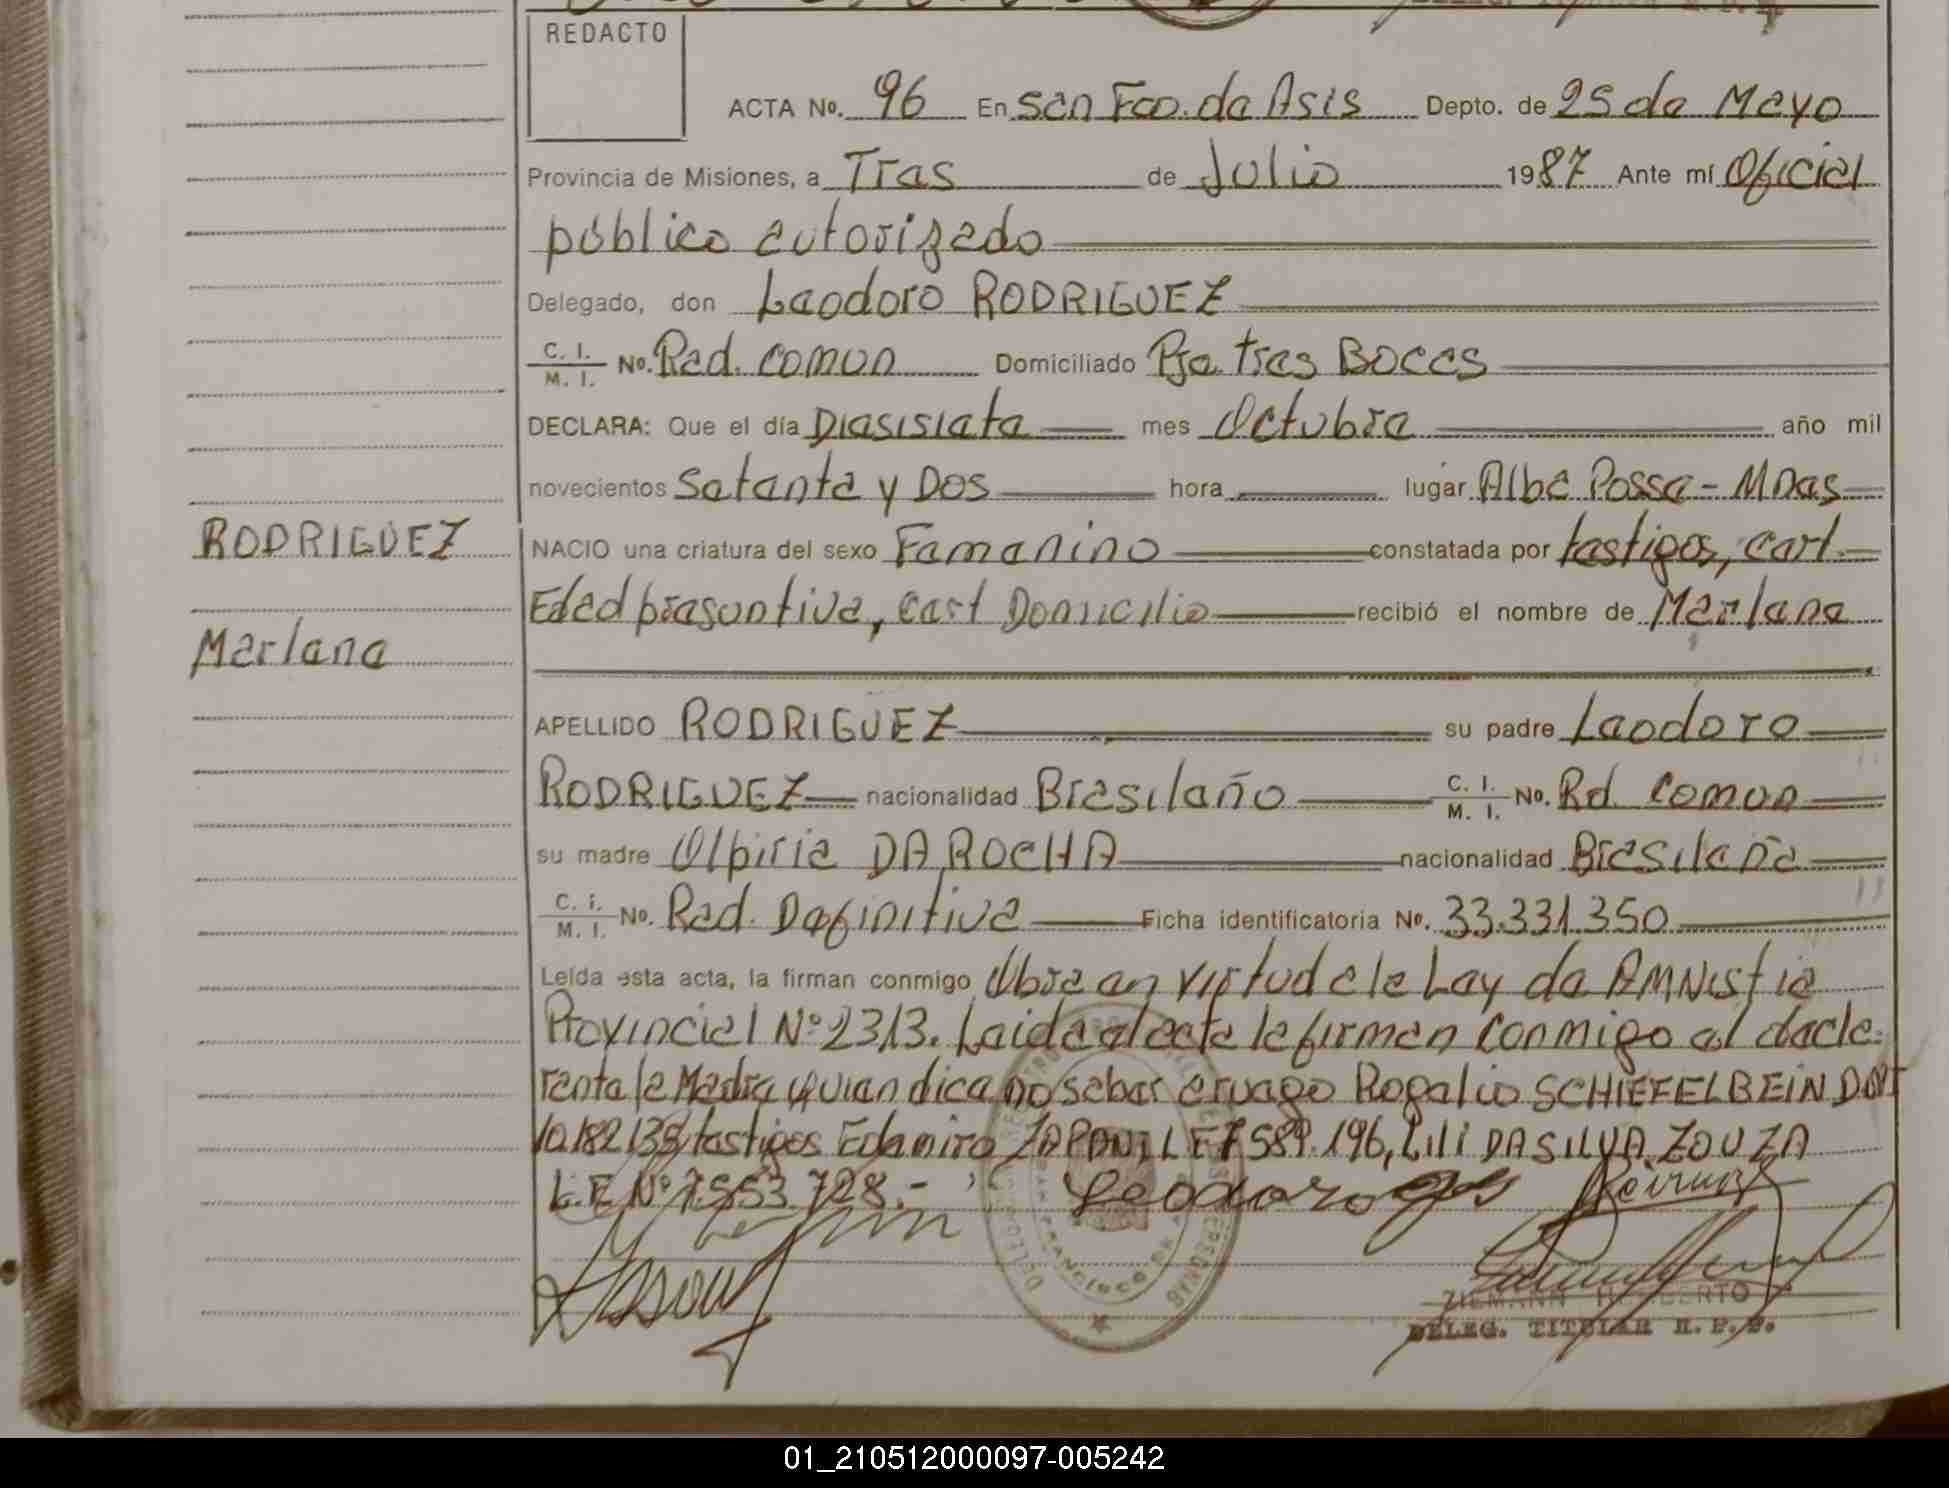 REDACTO
ACTA No. 96 En San Fco. de Asis Depto. de 25 de Mayo
Provincia de Misiones, a Tres de Julio 1987 Ante mí Oficial
público autorizado
Delegado, don Leodoro RODRIGUEZ
C. I. / M. I. No. Red. comun Domiciliado Pje. tres Bocas
DECLARA: Que el día Diesisiete mes Octubre año mil
novecientos Setenta y Dos hora lugar Alba Posse - Mnes
RODRIGUEZ
NACIO una criatura del sexo Femenino constatada por testigos, cert.
Edad presuntiva, cert Domicilio recibió el nombre de Marlene
Marlene
APELLIDO RODRIGUEZ su padre Leodoro
RODRIGUEZ nacionalidad Brasileño C. I. / M. I. No. Rd. comun
su madre Olpiria DA ROCHA nacionalidad Brasileña
C. i. / M. I. No. Rad. Definitiva Ficha identificatoria No. 33.331.350
Leída esta acta, la firman conmigo Obra en virtud a la Ley de AMNistia
Provincial Nº 2313. Leida el acta la firman conmigo el decla-
rente la Madre quien dice no saber a ruego Rogelio SCHIEFELBEIN DNI
10.182.139, testigos Edemiro LE 7589.196, Lili DA SILVA ZOUZA
L.E Nº 7.553.728.-
Leodoro
ZIEMANN HERBERTO
DELEG. TITULAR R. P. P.
01_210512000097-005242